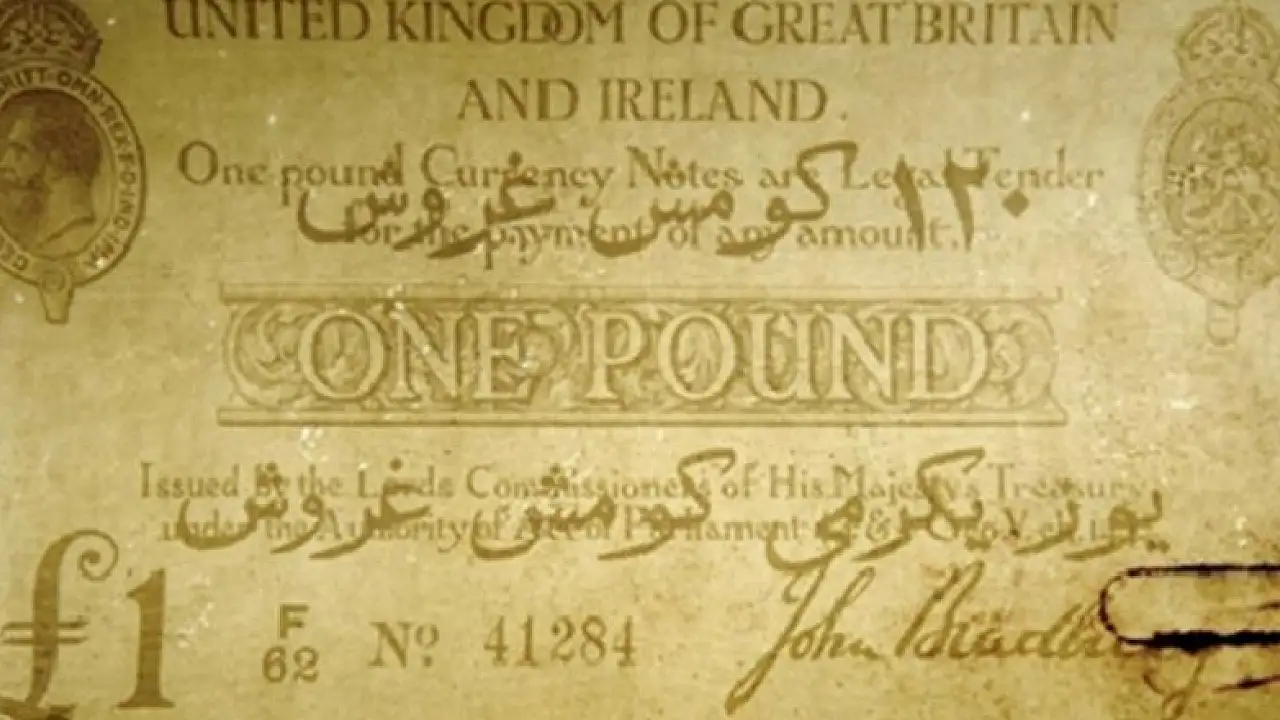 UNITED KINGDOM OF GREAT BRITAIN
AND IRELAND.
One pound Currency Notes are Legal Tender
for the payment of any amount.
١٢٠ كومش غروش
ONE POUND
Issued by the Lords Commissioners of His Majesty's Treasury
under the Authority of Act of Parliament
يوز يكرمي كومش غروش
£1
F
62
Nº 41284
John Bradbury